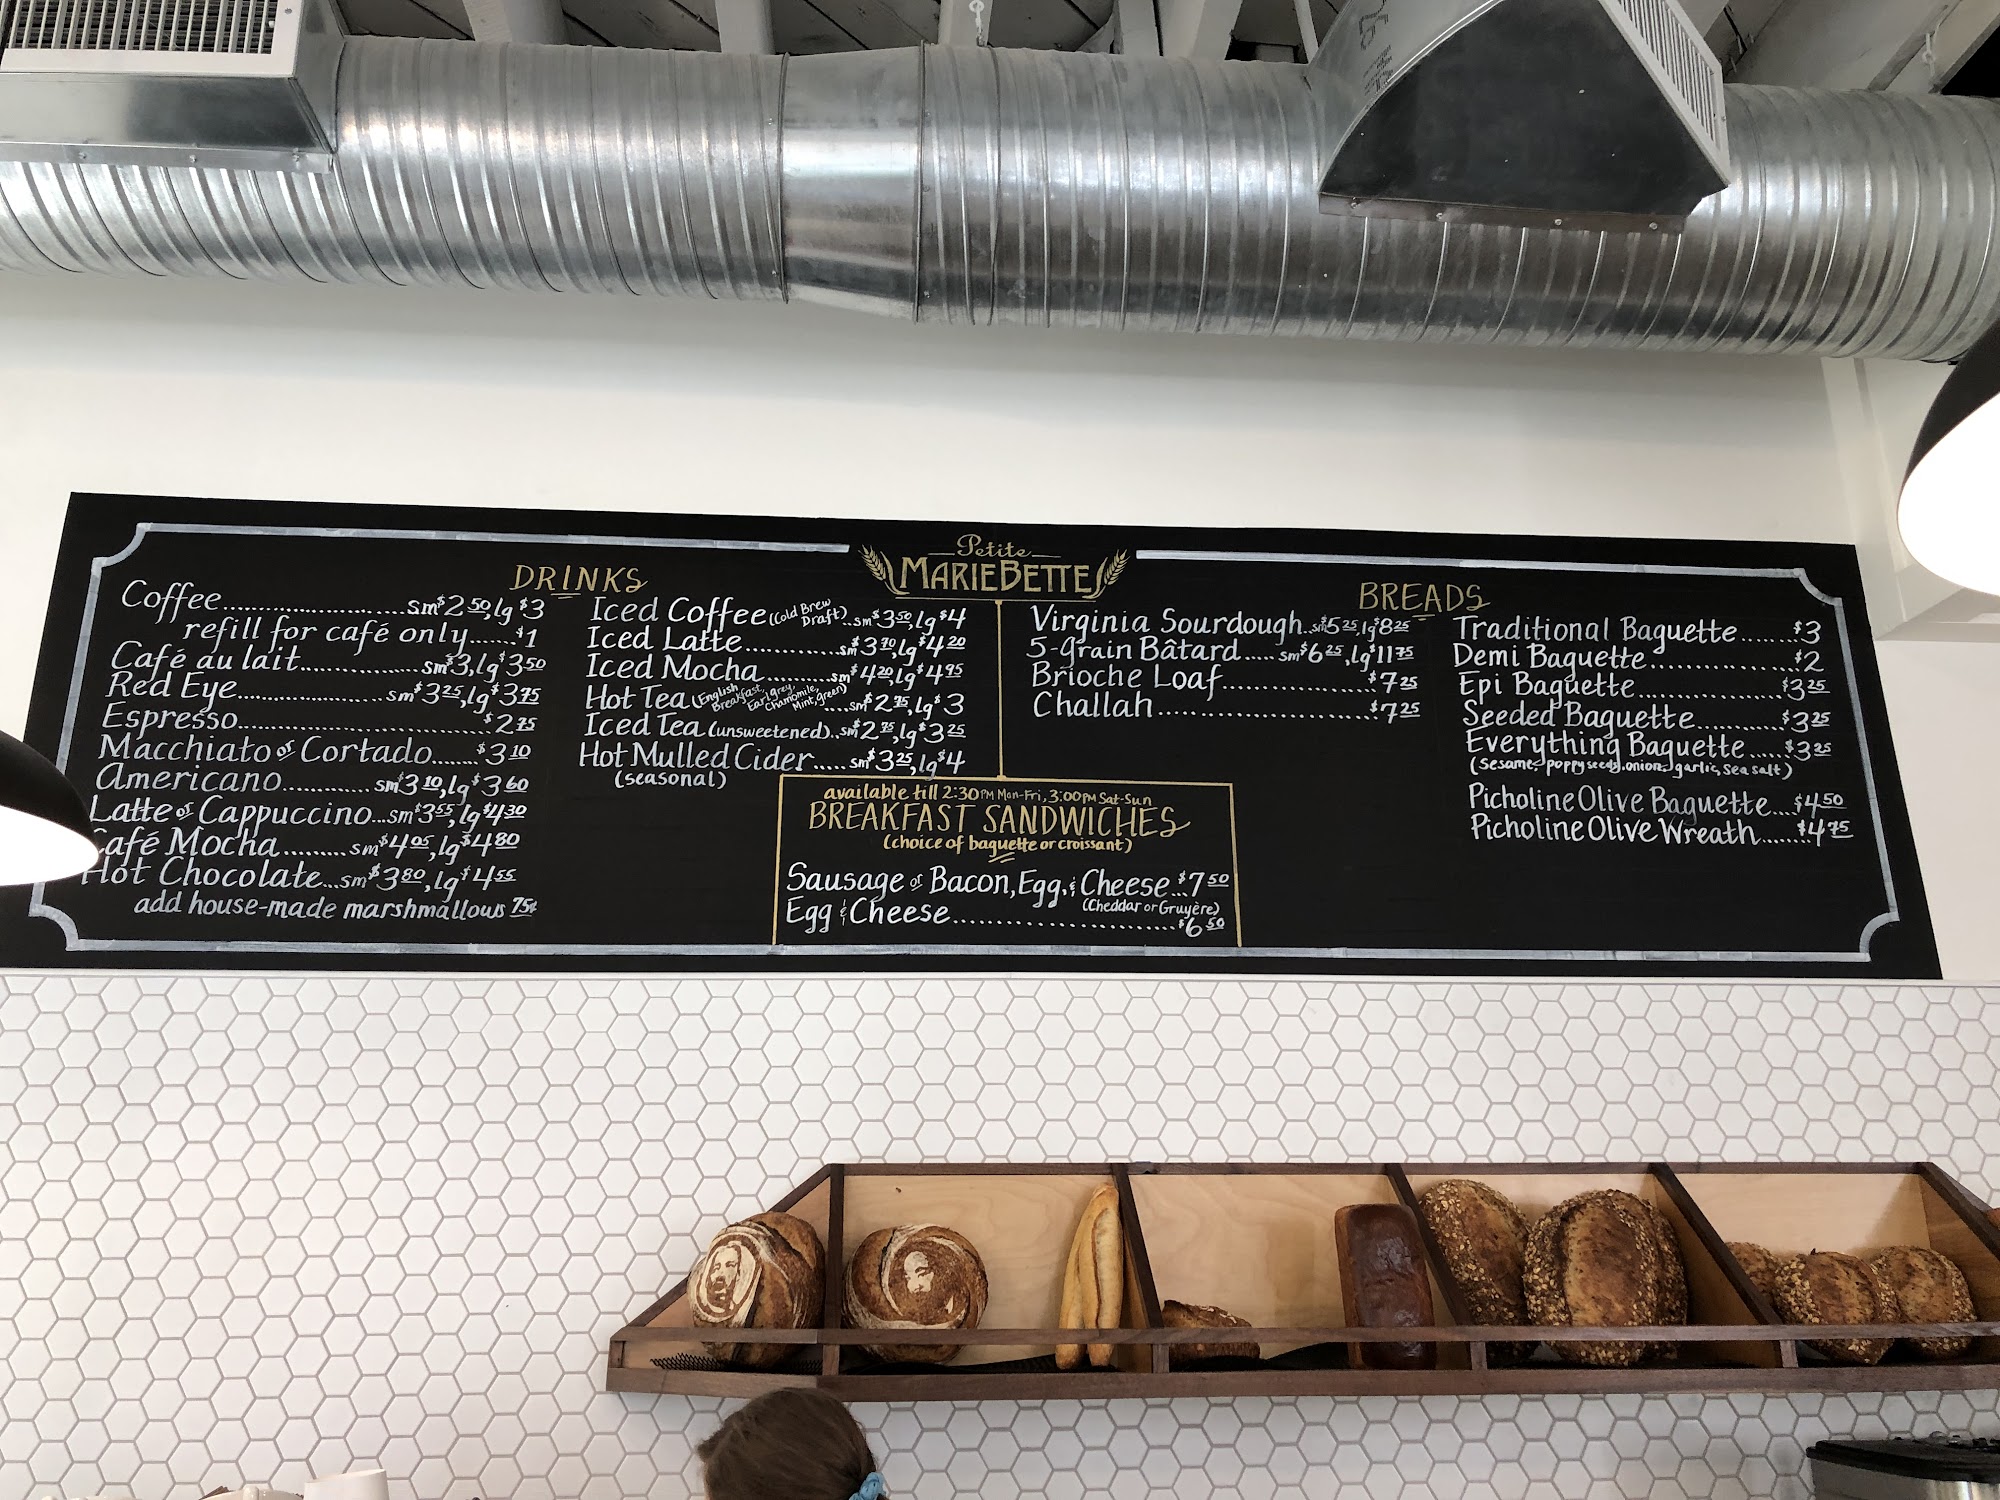 Petite
MARIEBETTE
DRINKS
Coffee..........sm $2.50, lg $3
refill for café only......$1
Café au lait..........sm $3, lg $3.50
Red Eye..........sm $3.25, lg $3.75
Espresso..........$2.75
Macchiato or Cortado........$3.10
Americano.........sm $3.10, lg $3.60
Latte or Cappuccino...sm $3.55, lg $4.30
Café Mocha.........sm $4.05, lg $4.80
Hot Chocolate...sm $3.80, lg $4.55
add house-made marshmallows 75¢
Iced Coffee (Cold Brew Draft)..sm $3.50, lg $4
Iced Latte..........sm $3.70, lg $4.20
Iced Mocha........sm $4.20, lg $4.95
Hot Tea (English Breakfast, Earl Grey, Chamomile, Mint, green).....sm $2.75, lg $3
Iced Tea (unsweetened)..sm $2.75, lg $3.25
Hot Mulled Cider.....sm $3.25, lg $4
(seasonal)
available till 2:30PM Mon-Fri, 3:00PM Sat-Sun
BREAKFAST SANDWICHES
(choice of baguette or croissant)
Sausage or Bacon, Egg, & Cheese...$7.50
(Cheddar or Gruyère)
Egg & Cheese..........$6.50
BREADS
Virginia Sourdough..sm $5.25, lg $8.25
5-Grain Bâtard.....sm $6.25, lg $11.75
Brioche Loaf..........$7.25
Challah..........$7.25
Traditional Baguette......$3
Demi Baguette..........$2
Epi Baguette..........$3.25
Seeded Baguette.........$3.25
Everything Baguette.....$3.25
(sesame, poppy seeds, onion, garlic, sea salt)
Picholine Olive Baguette...$4.50
Picholine Olive Wreath.......$4.75